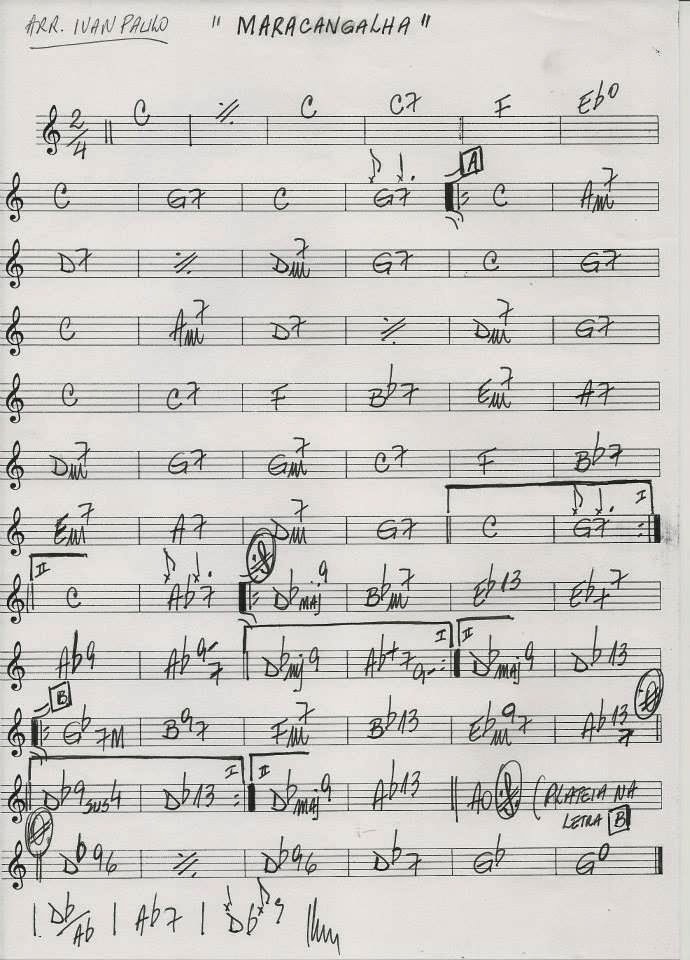 ARR. IVAN PAULO " MARACANGALHA "
2/4 C ٪ C C7 F Eb°
C G7 C G7 A C Am7
D7 ٪ Dm7 G7 C G7
C Am7 D7 ٪ Dm7 G7
C C7 F Bb7 Em7 A7
Dm7 G7 Gm7 C7 F Bb7
Em7 A7 Dm7 G7 C G7 I
II C Ab7 Dbmaj9 Bbm7 Eb13 Eb+7
Ab9 Ab9-7 Dbmj9 Ab+7 9- I II Dbmaj9 Db13
B Gb7M B97 Fm7 Bb13 Ebm97 Ab13 7
Db9sus4 Db13 I II Dbmaj9 Ab13 AO (PLATEIA NA
LETRA B
Db96 ٪ Db96 Db7 Gb G°
Db/Ab Ab7 Db9